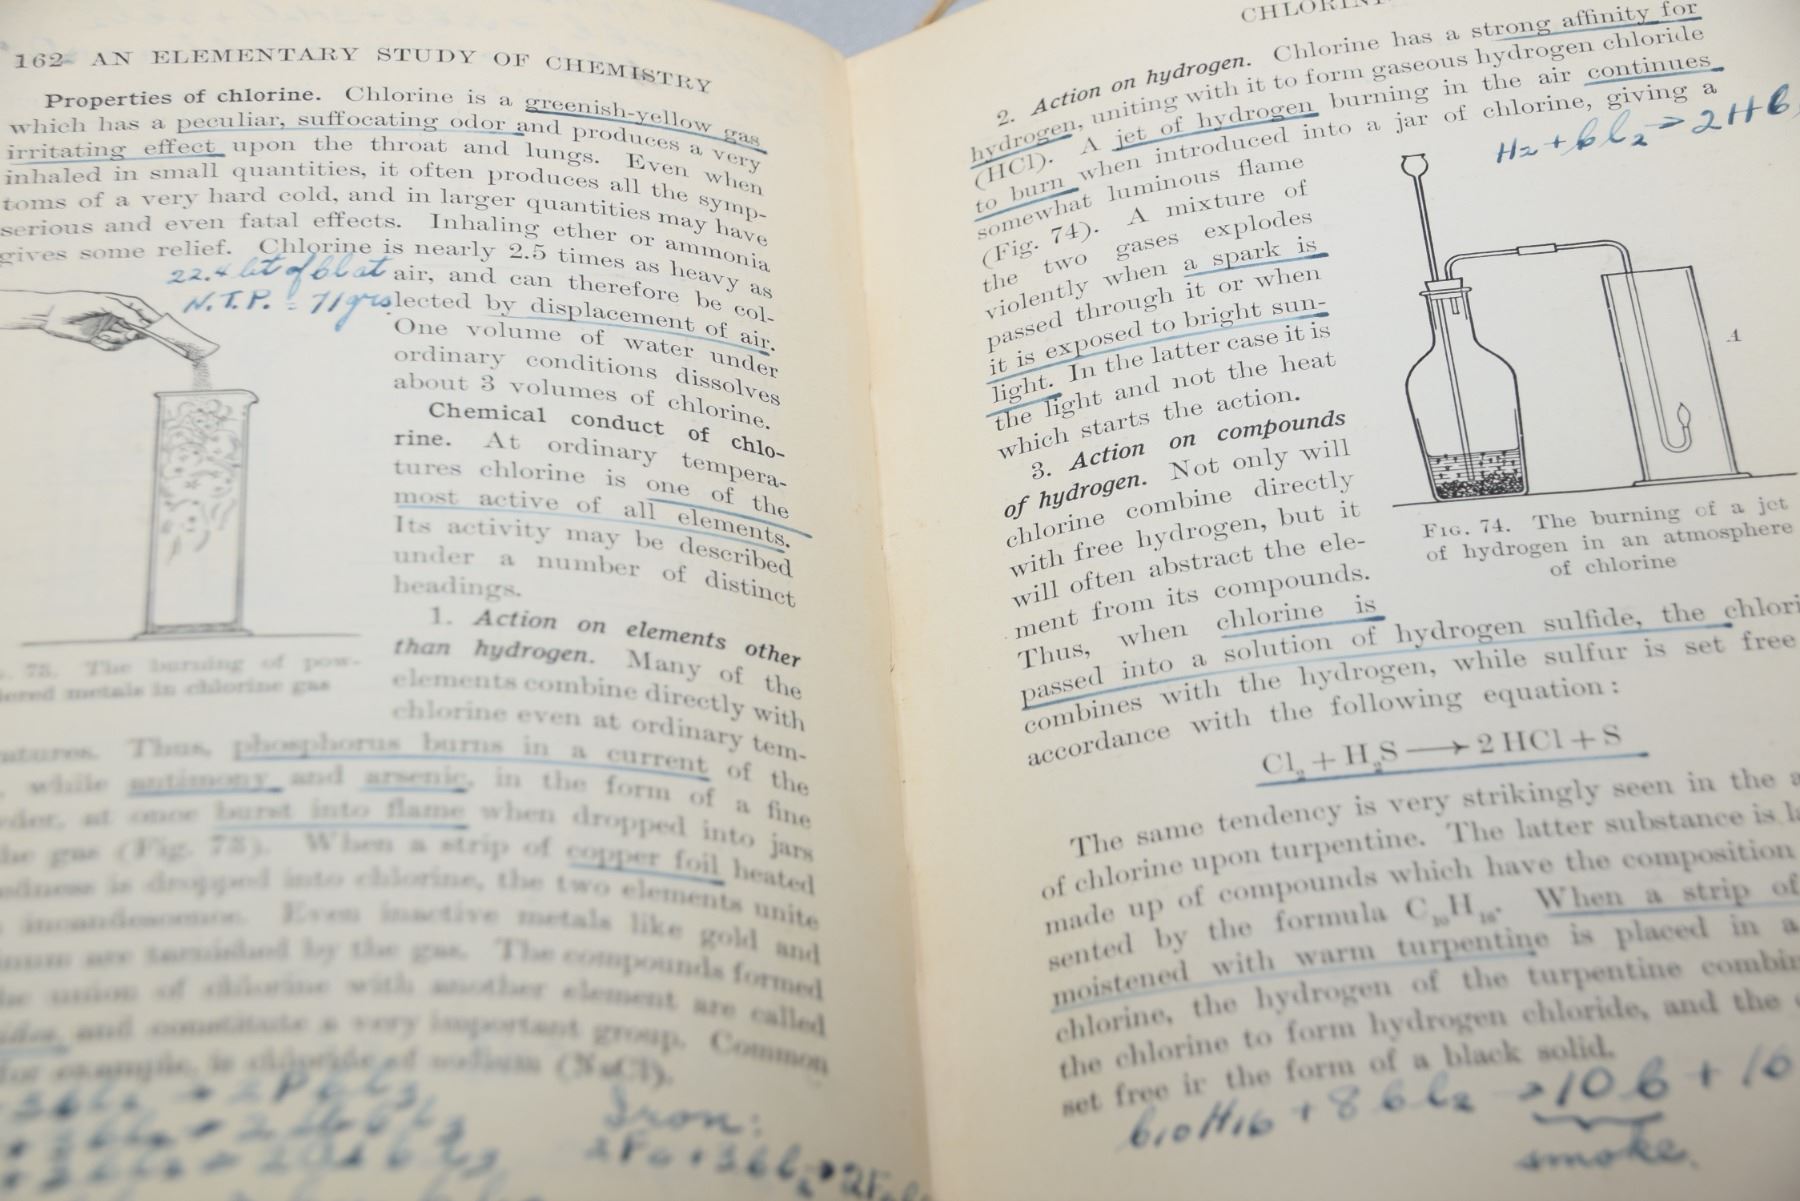 162 AN ELEMENTARY STUDY OF CHEMISTRY
Properties of chlorine. Chlorine is a greenish-yellow gas
which has a peculiar, suffocating odor and produces a very
irritating effect upon the throat and lungs. Even when
inhaled in small quantities, it often produces all the symp-
toms of a very hard cold, and in larger quantities may have
serious and even fatal effects. Inhaling ether or ammonia
gives some relief. Chlorine is nearly 2.5 times as heavy as
22.4 lit of Cl at
air, and can therefore be col-
N.T.P. = 71 grs
lected by displacement of air.
One volume of water under
ordinary conditions dissolves
about 3 volumes of chlorine.
Chemical conduct of chlo-
rine. At ordinary tempera-
tures chlorine is one of the
most active of all elements.
Its activity may be described
under a number of distinct
headings.
1. Action on elements other
than hydrogen. Many of the
elements combine directly with
chlorine even at ordinary tem-
The burning of pow-
metals in chlorine gas
Thus, phosphorus burns in a current of the
while antimony and arsenic, in the form of a fine
at once burst into flame when dropped into jars
gas (Fig. 73). When a strip of copper foil heated
is dropped into chlorine, the two elements unite
incandescence. Even inactive metals like gold and
are tarnished by the gas. The compounds formed
union of chlorine with another element are called
and constitute a very important group. Common
for example, is chloride of sodium (NaCl).
Iron:
2. Action on hydrogen. Chlorine has a strong affinity for
hydrogen, uniting with it to form gaseous hydrogen chloride
(HCl). A jet of hydrogen burning in the air continues
to burn when introduced into a jar of chlorine, giving a
H2 + Cl2 → 2HC
somewhat luminous flame
(Fig. 74). A mixture of
the two gases explodes
violently when a spark is
passed through it or when
it is exposed to bright sun-
light. In the latter case it is
the light and not the heat
which starts the action.
A
3. Action on compounds
of hydrogen. Not only will
chlorine combine directly
with free hydrogen, but it
will often abstract the ele-
ment from its compounds.
FIG. 74. The burning of a jet
of hydrogen in an atmosphere
of chlorine
Thus, when chlorine is
passed into a solution of hydrogen sulfide, the chlori
combines with the hydrogen, while sulfur is set free
accordance with the following equation:
Cl₂ + H₂S ⟶ 2 HCl + S
The same tendency is very strikingly seen in the a
of chlorine upon turpentine. The latter substance is la
made up of compounds which have the composition
sented by the formula C₁₀H₁₆. When a strip of
moistened with warm turpentine is placed in a
chlorine, the hydrogen of the turpentine combin
the chlorine to form hydrogen chloride, and the
set free in the form of a black solid.
C10H16 + 8Cl2 → 10C + 16
smoke.